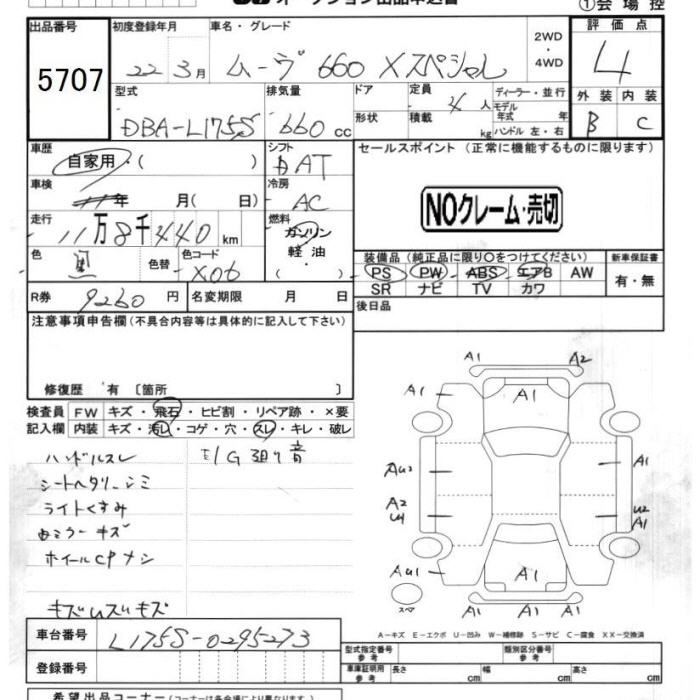 オークション出品申込書
①会場控
出品番号
5707
初度登録年月
22年3月
車名・グレード
ムーヴ 660 Xスペシャル
2WD
・
4WD
評価点
4
型式
DBA-L175S
排気量
660 cc
ドア
形状
定員 4人
積載 kg
ディーラー・並行
モデル年式 年
ハンドル 左・右
外装 内装
B C
車歴
自家用・( )
シフト
DAT
セールスポイント (正常に機能するものに限ります)
車検
年 月( 日)
冷房
AC
NOクレーム・売切
走行
11万8千440km
燃料
ガソリン
軽油
( )
色
黒
色替
色コード
X06
装備品(純正品に限り○をつけてください)
新車保証書
PS PW ABS エアB AW
SR ナビ TV カワ
有・無
R券 9260円 名変期限 月 日
後日品
注意事項申告欄(不具合内容等は具体的に記入して下さい)
修復歴 有 〔箇所 〕
検査員 FW キズ・飛石・ヒビ割・リペア跡・×要
記入欄 内装 キズ・汚れ・コゲ・穴・スレ・キレ・破レ
ハンドルスレ
E/G廻り音
シートヘタリ シミ
ライトくすみ
ミラーキズ
ホイールCPナシ
A1 A2
A1 A1
AU2 A1
A2
U1
U2
A1
AU1 A1
スペア
A1 A1 A1
A-キズ E-エクボ U-凹み W-補修跡 S-サビ C-腐食 XX-交換済
車台番号 L175S-0295273
登録番号
型式指定番号
参考
類別区分番号
参考
車庫証明用
参考
長さ cm 幅 cm 高さ cm
希望出品コーナー(コーナーは各会場により異なります)